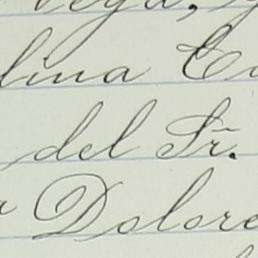 Vega,
lina
del Sr.
Dolore